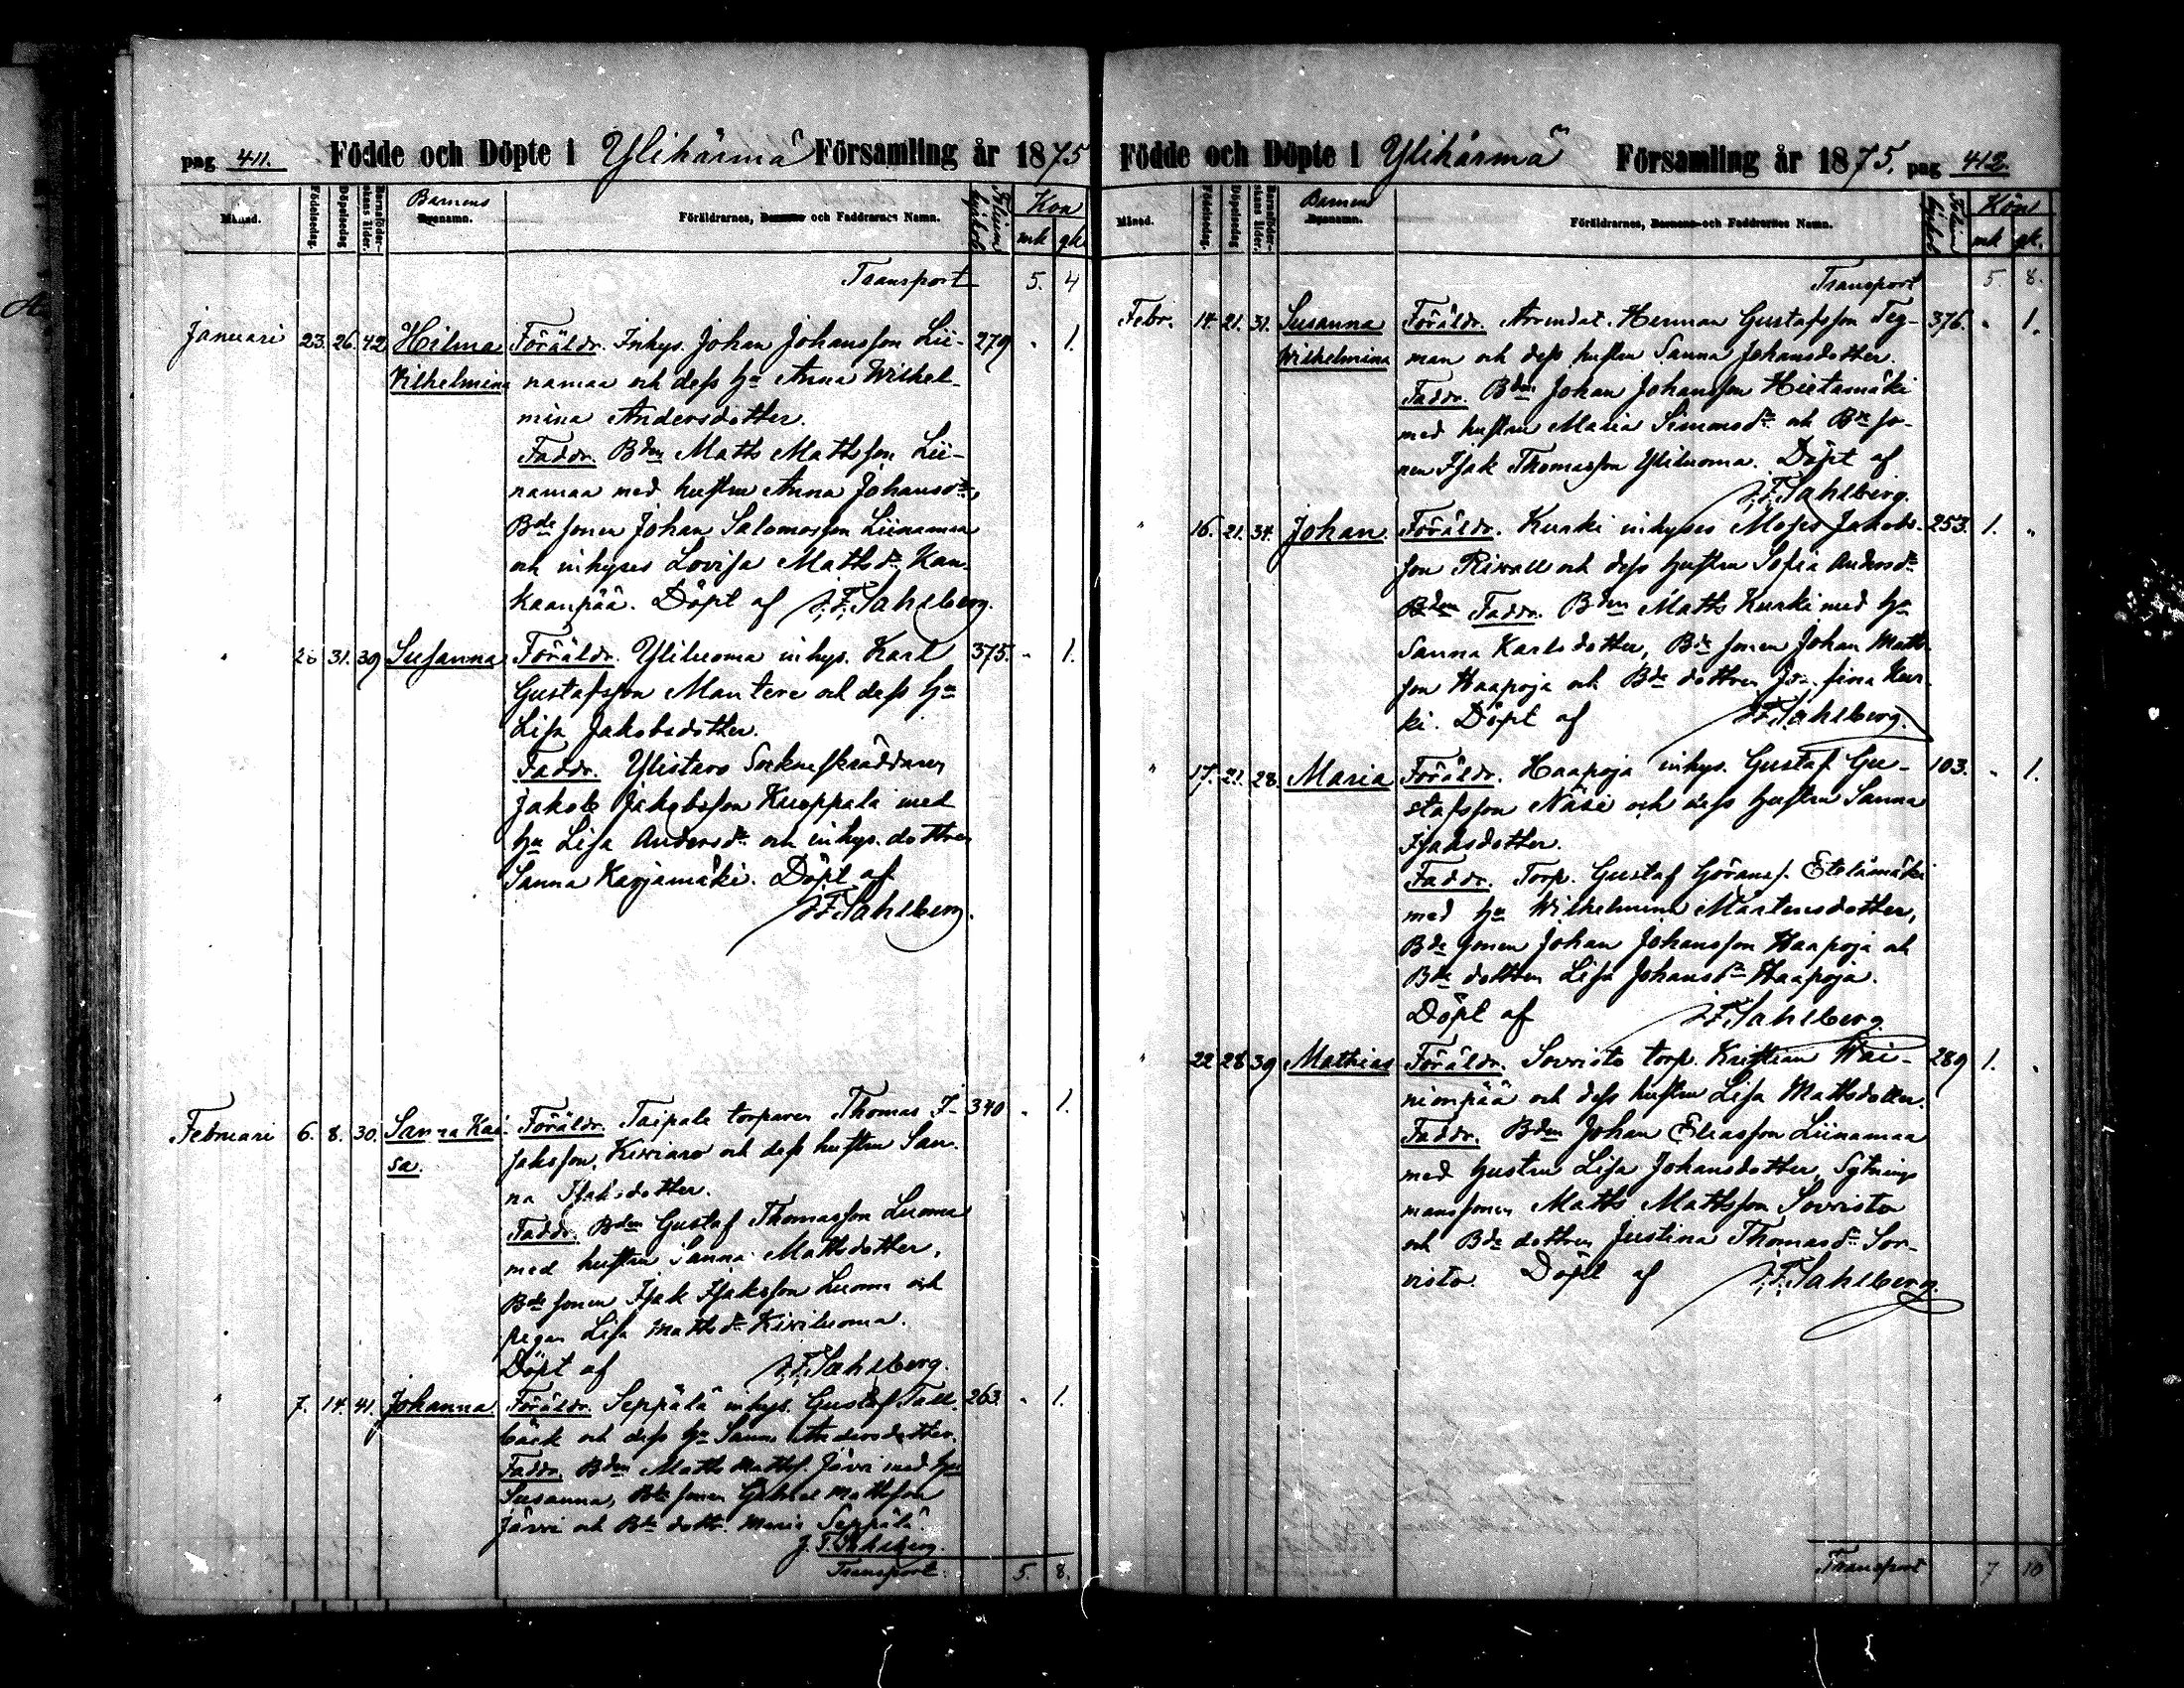 pag 411. Födde och Döpte i Ylihärmä Församling år 1875
Månad. Födelsedag. Döpelsedag Barnaföder-skans ålder. Barnens Byanamn. Föräldrarnes, Barnens och Faddrarnes Namn. Kön
mk qk
Transport 5. 4
Januari 23. 26. 42 Hilma Föräldr. Inhys. Johan Johansson Lii- 279 " 1.
Vilhelmina namaa och dess hu Anna Wilhel-
mina Andersdotter.
Faddr. Bden Matts Mattsson Lii-
namaa med hustru Anna Johansdr,
Bde sonen Johan Salomosson Liinamaa
och inhyses Lovisa Mattsdr Kan-
kaanpää. Döpt af J.F. Sahlberg.
" 28 31. 39 Susanna Föräldr. Yliluoma inhys. Karl 375. " 1.
Gustafsson Mantere och dess hu
Lisa Jakobsdotter.
Faddr. Ylistaro Sockneskräddaren
Jakob Jakobsson Kuoppala med
hu Lisa Andersdr och inhys. dottren
Sanna Karjamäki. Döpt af
J.F. Sahlberg.
Februari 6. 8. 30. Sanna Kai- Föräldr. Taipale torparen Thomas I- 340 " 1.
sa. saksson, Kiviaro och dess hustru San-
na Isaksdotter.
Faddr. Bden Gustaf Thomasson Luoma
med hustru Sanna Mattsdotter,
Bde sonen Isak Isaksson Luoma och
pigan Lisa Mattsdr Kiviluoma.
Döpt af J.F. Sahlberg.
" 7. 14. 41. Johanna Föräldr. Seppälä inhys. Gustaf Tall- 263. " 1.
bäck och dess hu Sanna Andersdotter.
Faddr. Bden Matts Mattss. Järvi med hu
Susanna, Bde sonen Gabriel Mattsson
Järvi och Bde dottr. Maria Seppälä.
J.F. Sahlberg.
Transport. 5. 8.
Födde och Döpte i Ylihärmä Församling år 1875. pag 412.
Månad. Födelsedag. Döpelsedag Barnaföder-skans ålder. Barnens Byanamn. Föräldrarnes, Barnens och Faddrarnes Namn. Kön
mk qk.
Transport 5 8.
Febr. 14. 21. 31. Susanna Föräldr. Arrendat. Herman Gustafsson Teg- 376. " 1.
Wilhelmina man och dess hustru Sanna Johansdotter.
Faddr. Bden Johan Johansson Hietamäki
med hustru Maria Simonsdr och Bde so-
nen Isak Thomasson Yliluoma. Döpt af
J.F. Sahlberg.
" 16. 21. 34. Johan. Föräldr. Kurki inhyses Moses Jakobs- 253. 1. "
son Riwall och dess hustru Sofia Andersdr
Bden Faddr. Bden Matts Kurki med hu
Sanna Karlsdotter, Bde sonen Johan Matts-
son Haapoja och Bde dottren Jo- sina Kur-
ki. Döpt af J.F. Sahlberg.
" 17. 21. 28. Maria Föräldr. Haapoja inhys. Gustaf Gu- 103. " 1.
stafsson Näsi och dess hustru Sanna
Isaksdotter.
Faddr. Torp. Gustaf Göranss. Etelämäki
med hu Wilhelmina Mårtensdotter,
Bde sonen Johan Johansson Haapoja och
Bde dottren Lisa Johansdr Haapoja.
Döpt af J.F. Sahlberg.
" 22 28 39 Mathias Föräldr. Sorvisto torp. Kristian Wai- 289 1. "
nionpää och dess hustru Lisa Mattsdotter.
Faddr. Bden Johan Eliasson Liinamaa
med hustru Lisa Johansdotter, Sytnings
manssonen Matts Mattsson Sorvisto
och Bde dottren Justina Thomasdr Sor-
visto Döpt af J.F. Sahlberg.
Transport 7 10